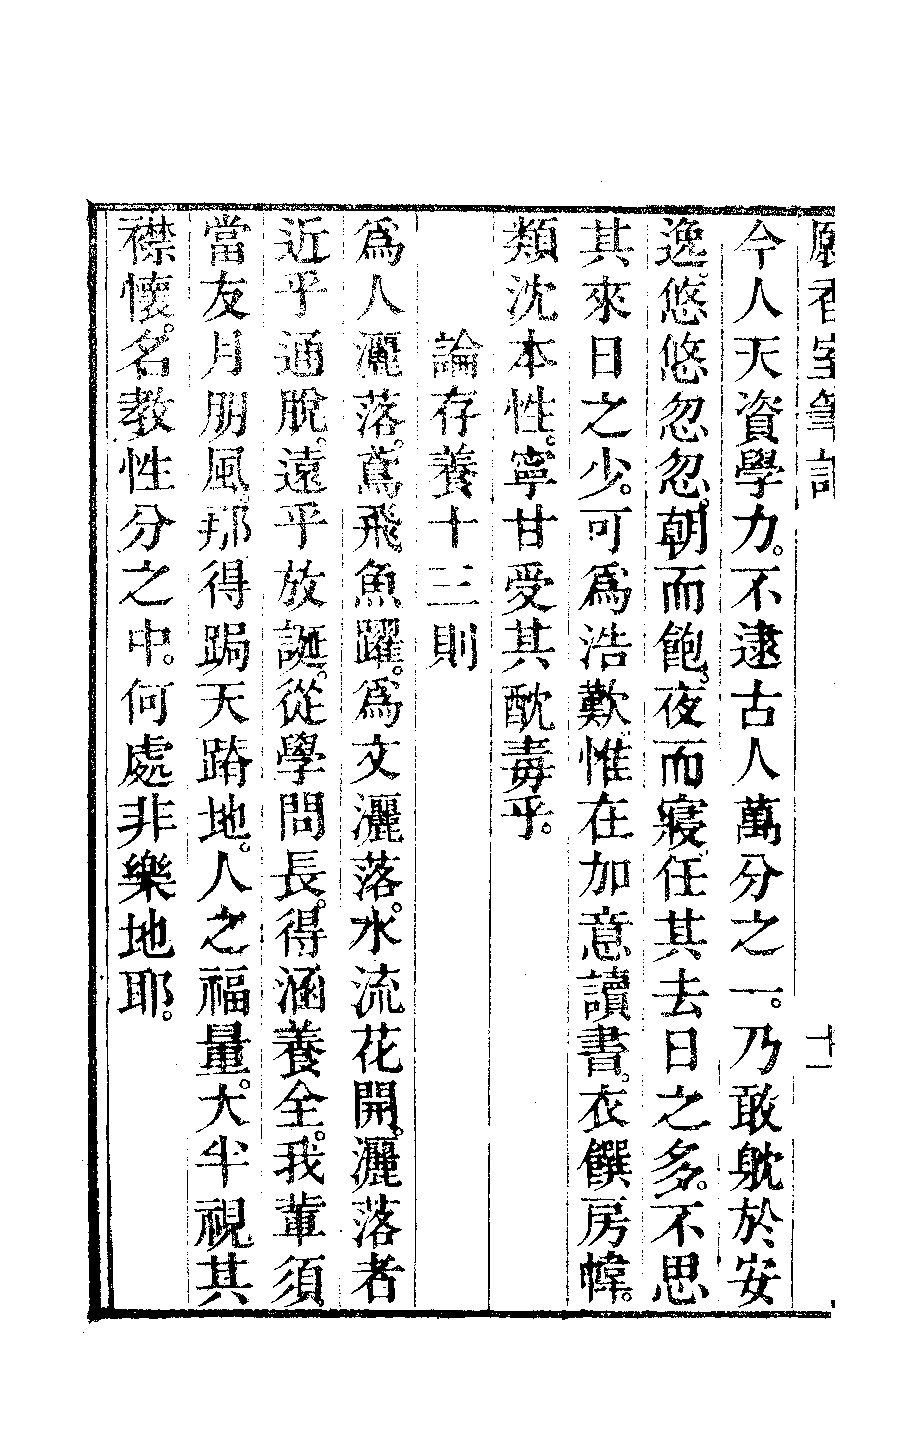 香室筆記
十一
今人天資學力。不逮古人萬分之一。乃敢躭於安
逸。悠悠忽忽。朝而飽。夜而寢。任其去日之多。不思
其來日之少。可爲浩歎。惟在加意讀書。衣饌房幃。
類沈本性。寧甘受其酖毒乎。
論存養十三則
爲人灑落。鳶飛魚躍。爲文灑落。水流花開。灑落者
近乎通脫。遠乎放誕。從學問長。得涵養全。我輩須
當友月朋風。那得跼天蹐地。人之福量。大半視其
襟懷。名教性分之中。何處非樂地耶。